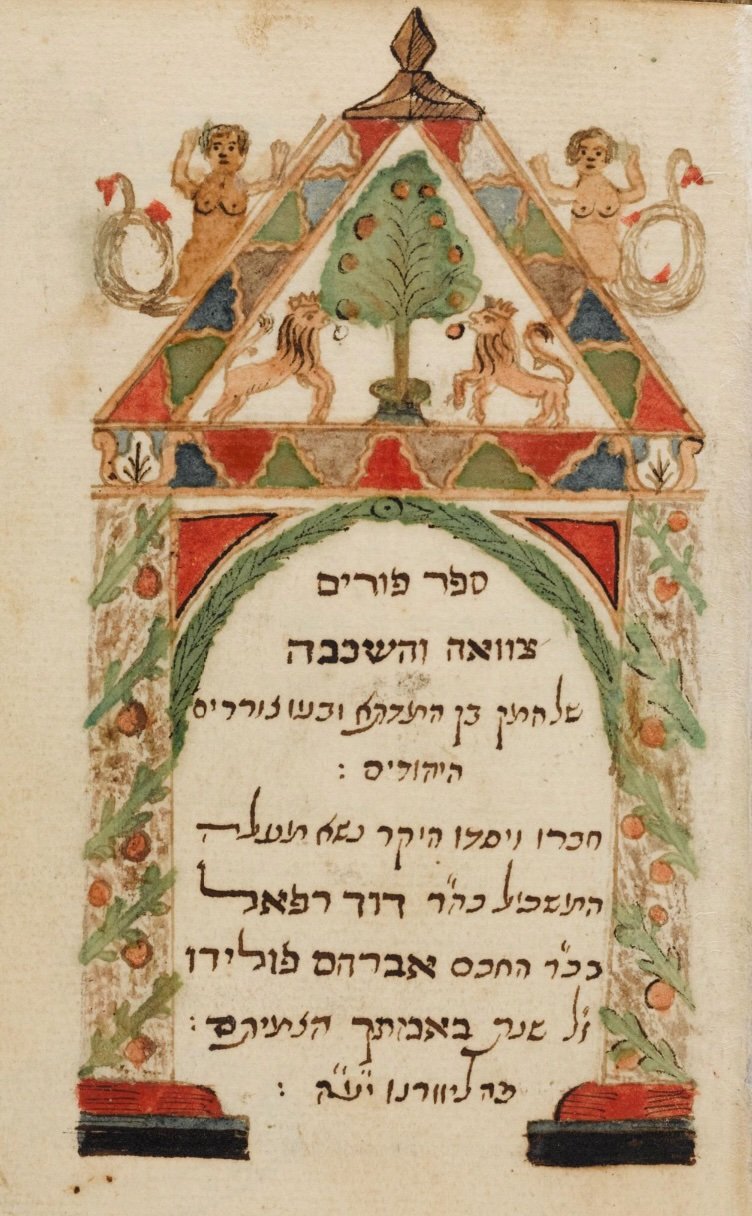 ספר פורים
צוואה והשכבה
של המן בן המדתא ובניו צוררים
היהודים :
חברו ויסדו היקר נשא ונעלה
המשכיל כה"ר דוד רפאל
בכ"ר החכם אברהם פולידו
ז"ל שנת באמתך הצמיתם :
פה ליוורנו יע"א :